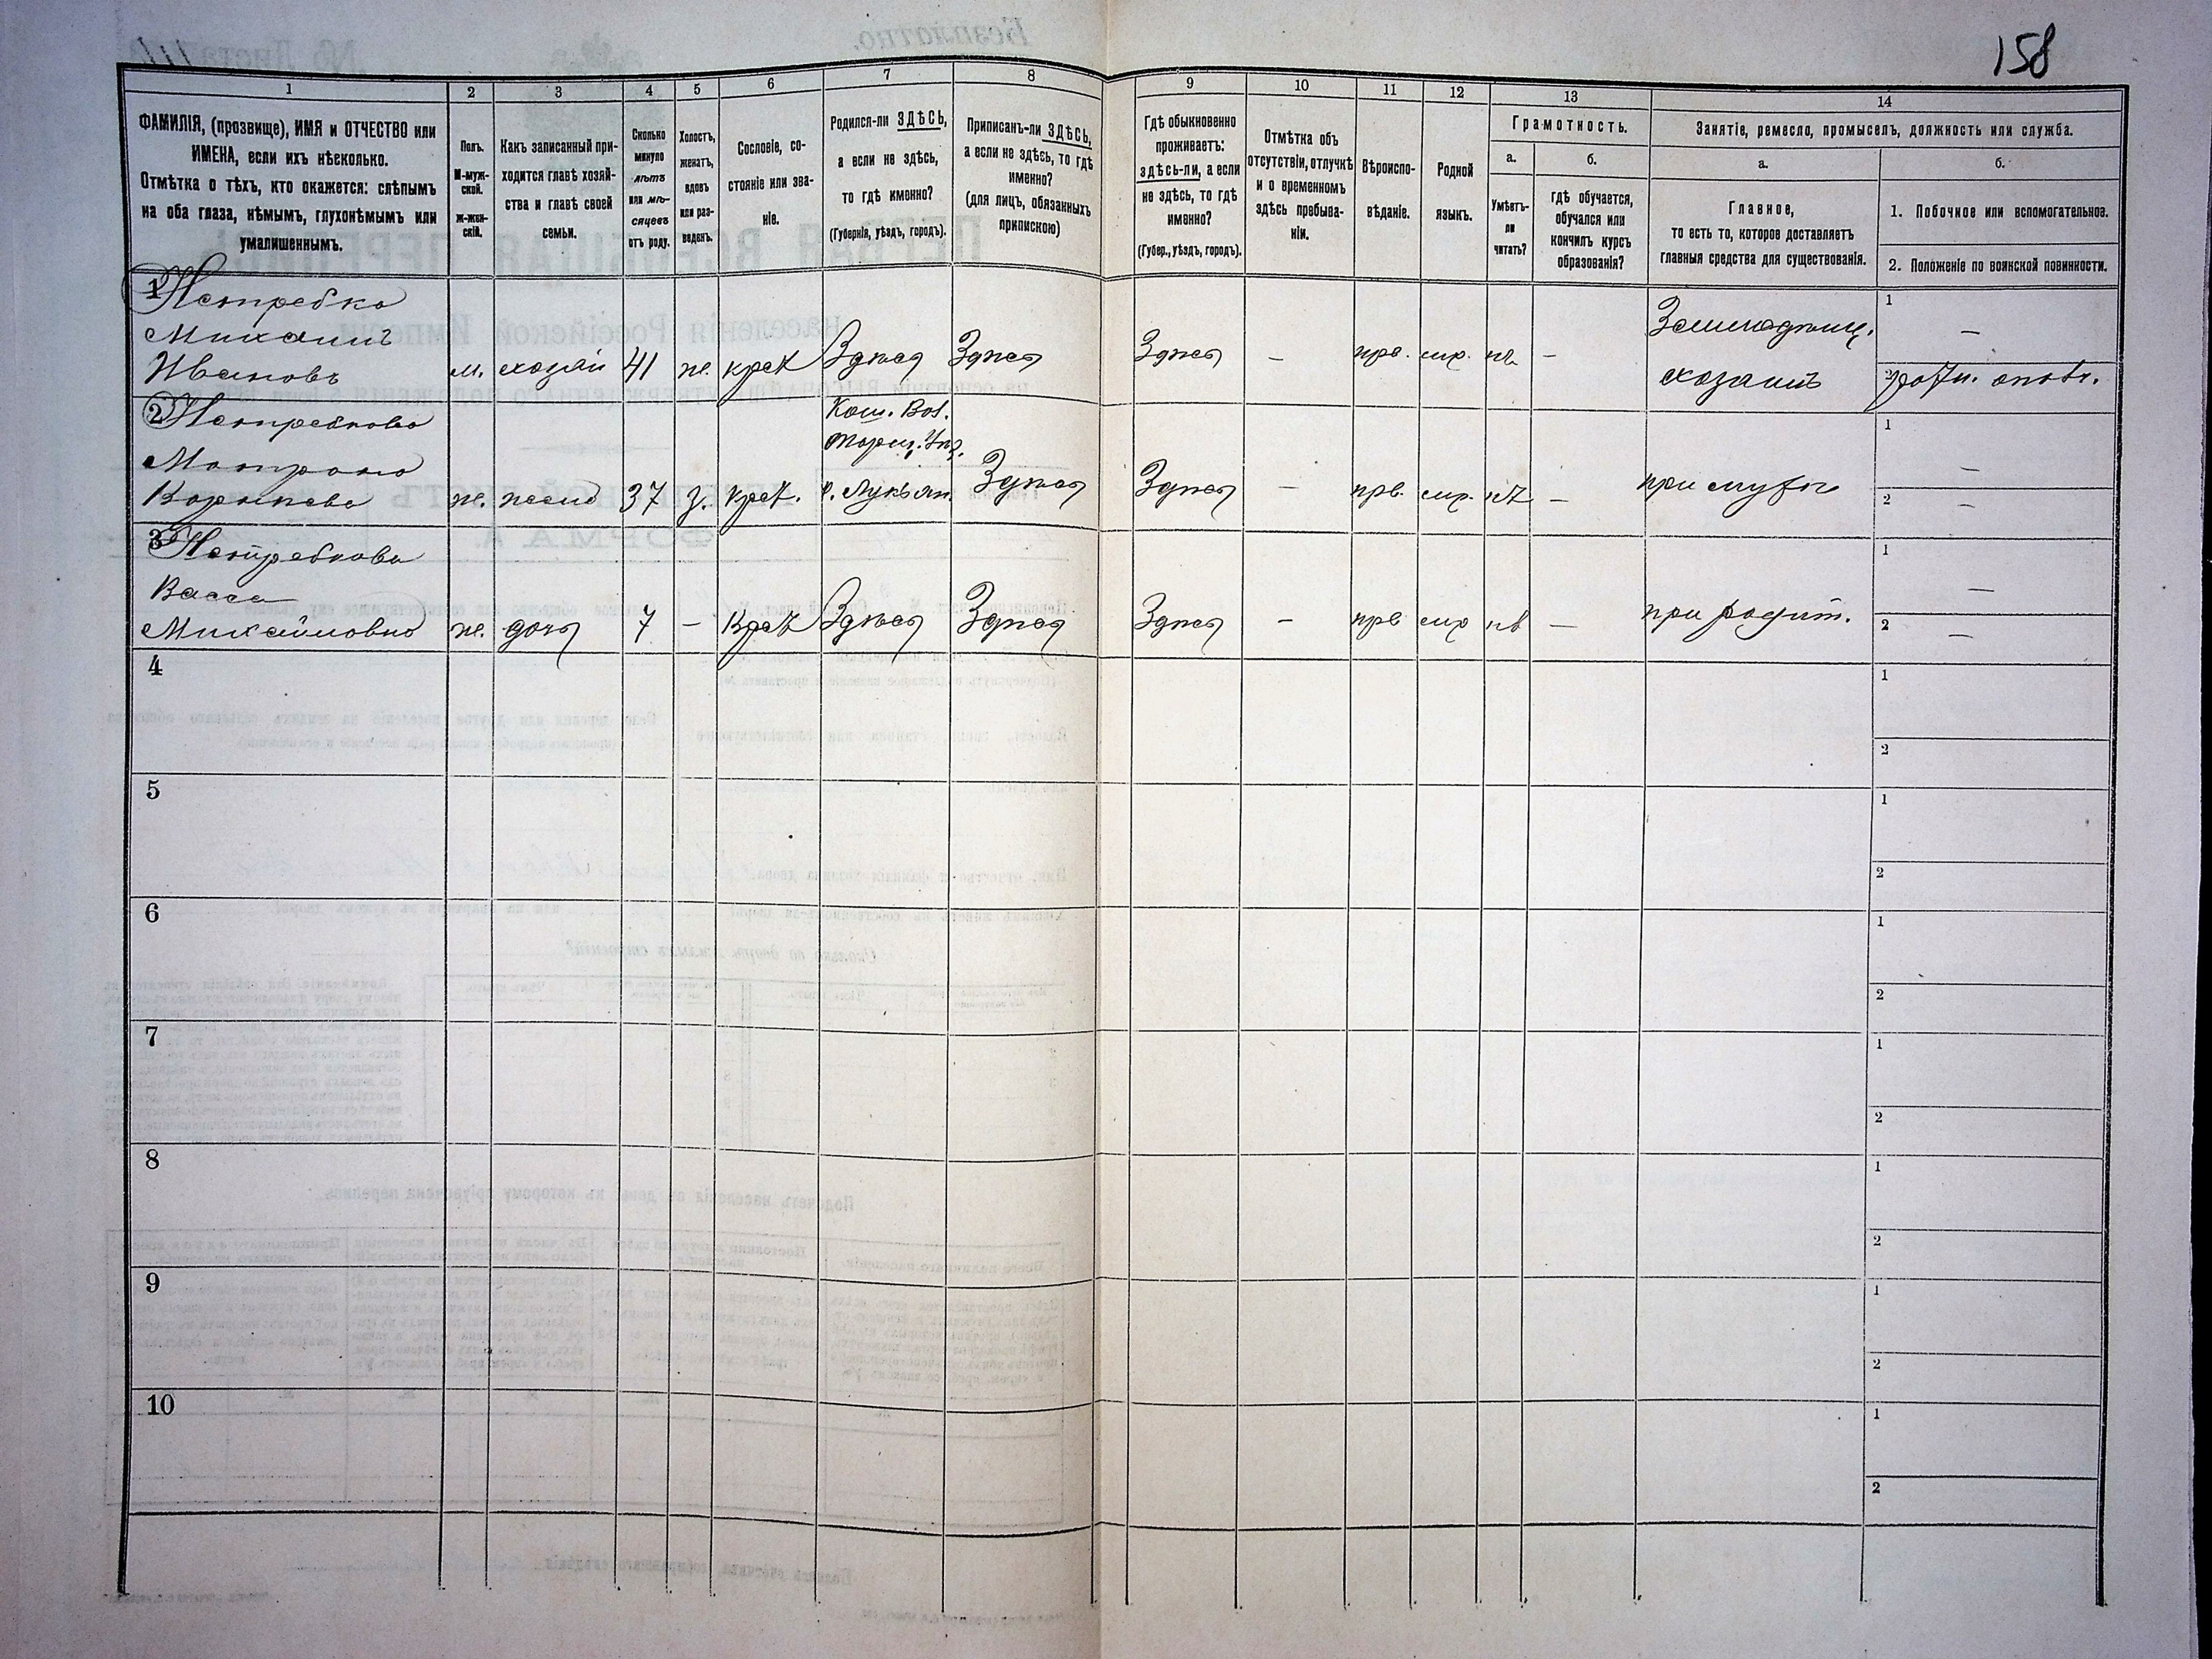 158
1
2
3
4
5
6
7
8
9
10
11
12
13
14
ФАМИЛІЯ, (прозвище), ИМЯ и ОТЧЕСТВО или
ИМЕНА, если ихъ нѣсколько.
Отмѣтка о тѣхъ, кто окажется: слѣпымъ
на оба глаза, нѣмымъ, глухонѣмымъ или
умалишеннымъ.
Полъ.
М-муж-
ской.
ж-жен-
скій.
Какъ записанный при-
ходится главѣ хозяй-
ства и главѣ своей
семьи.
Сколько
минуло
лѣтъ
или мѣ-
сяцевъ
отъ роду.
Холостъ,
женатъ,
вдовъ
или раз-
веденъ.
Сословіе, со-
стояніе или зва-
ніе.
Родился-ли ЗДѢСЬ,
а если не здѣсь,
то гдѣ именно?
(Губернія, уѣздъ, городъ).
Приписанъ-ли ЗДѢСЬ,
а если не здѣсь, то гдѣ
именно?
(для лицъ, обязанныхъ
припискою)
Гдѣ обыкновенно
проживаетъ:
здѣсь-ли, а если
не здѣсь, то гдѣ
именно?
(Губер., уѣздъ, городъ).
Отмѣтка объ
отсутствіи, отлучкѣ
и о временномъ
здѣсь пребыва-
ніи.
Вѣроиспо-
вѣданіе.
Родной
языкъ.
Грамотность.
а.
б.
Умѣетъ-
ли
читать?
гдѣ обучается,
обучался или
кончилъ курсъ
образованія?
Занятіе, ремесло, промыселъ, должность или служба.
а.
б.
Главное,
то есть то, которое доставляетъ
главныя средства для существованія.
1. Побочное или вспомогательное.
2. Положеніе по воинской повинности.
1 Нетребко
Михаилъ
Ивановъ
м. хозяи 41 ж. крест Здѣсь Здѣсь Здѣсь — прв. мр. нѣ —
Земледѣлец.
хозяинъ
1 —
2
2 Нетребкова
Матрона
Корнѣева
ж. жена 37 з. крест.
Вол.
с. Лукьян.
Здѣсь Здѣсь — прв. мр. нѣт —
при мужѣ
1 —
2 —
3 Нетребкова
Васса
Михайловна
ж. дочь 7 — Крест Здѣсь Здѣсь Здѣсь — прв мр нѣ —
при родит.
1 —
2 —
4
1
2
5
1
2
6
1
2
7
1
2
8
1
2
9
1
2
10
1
2